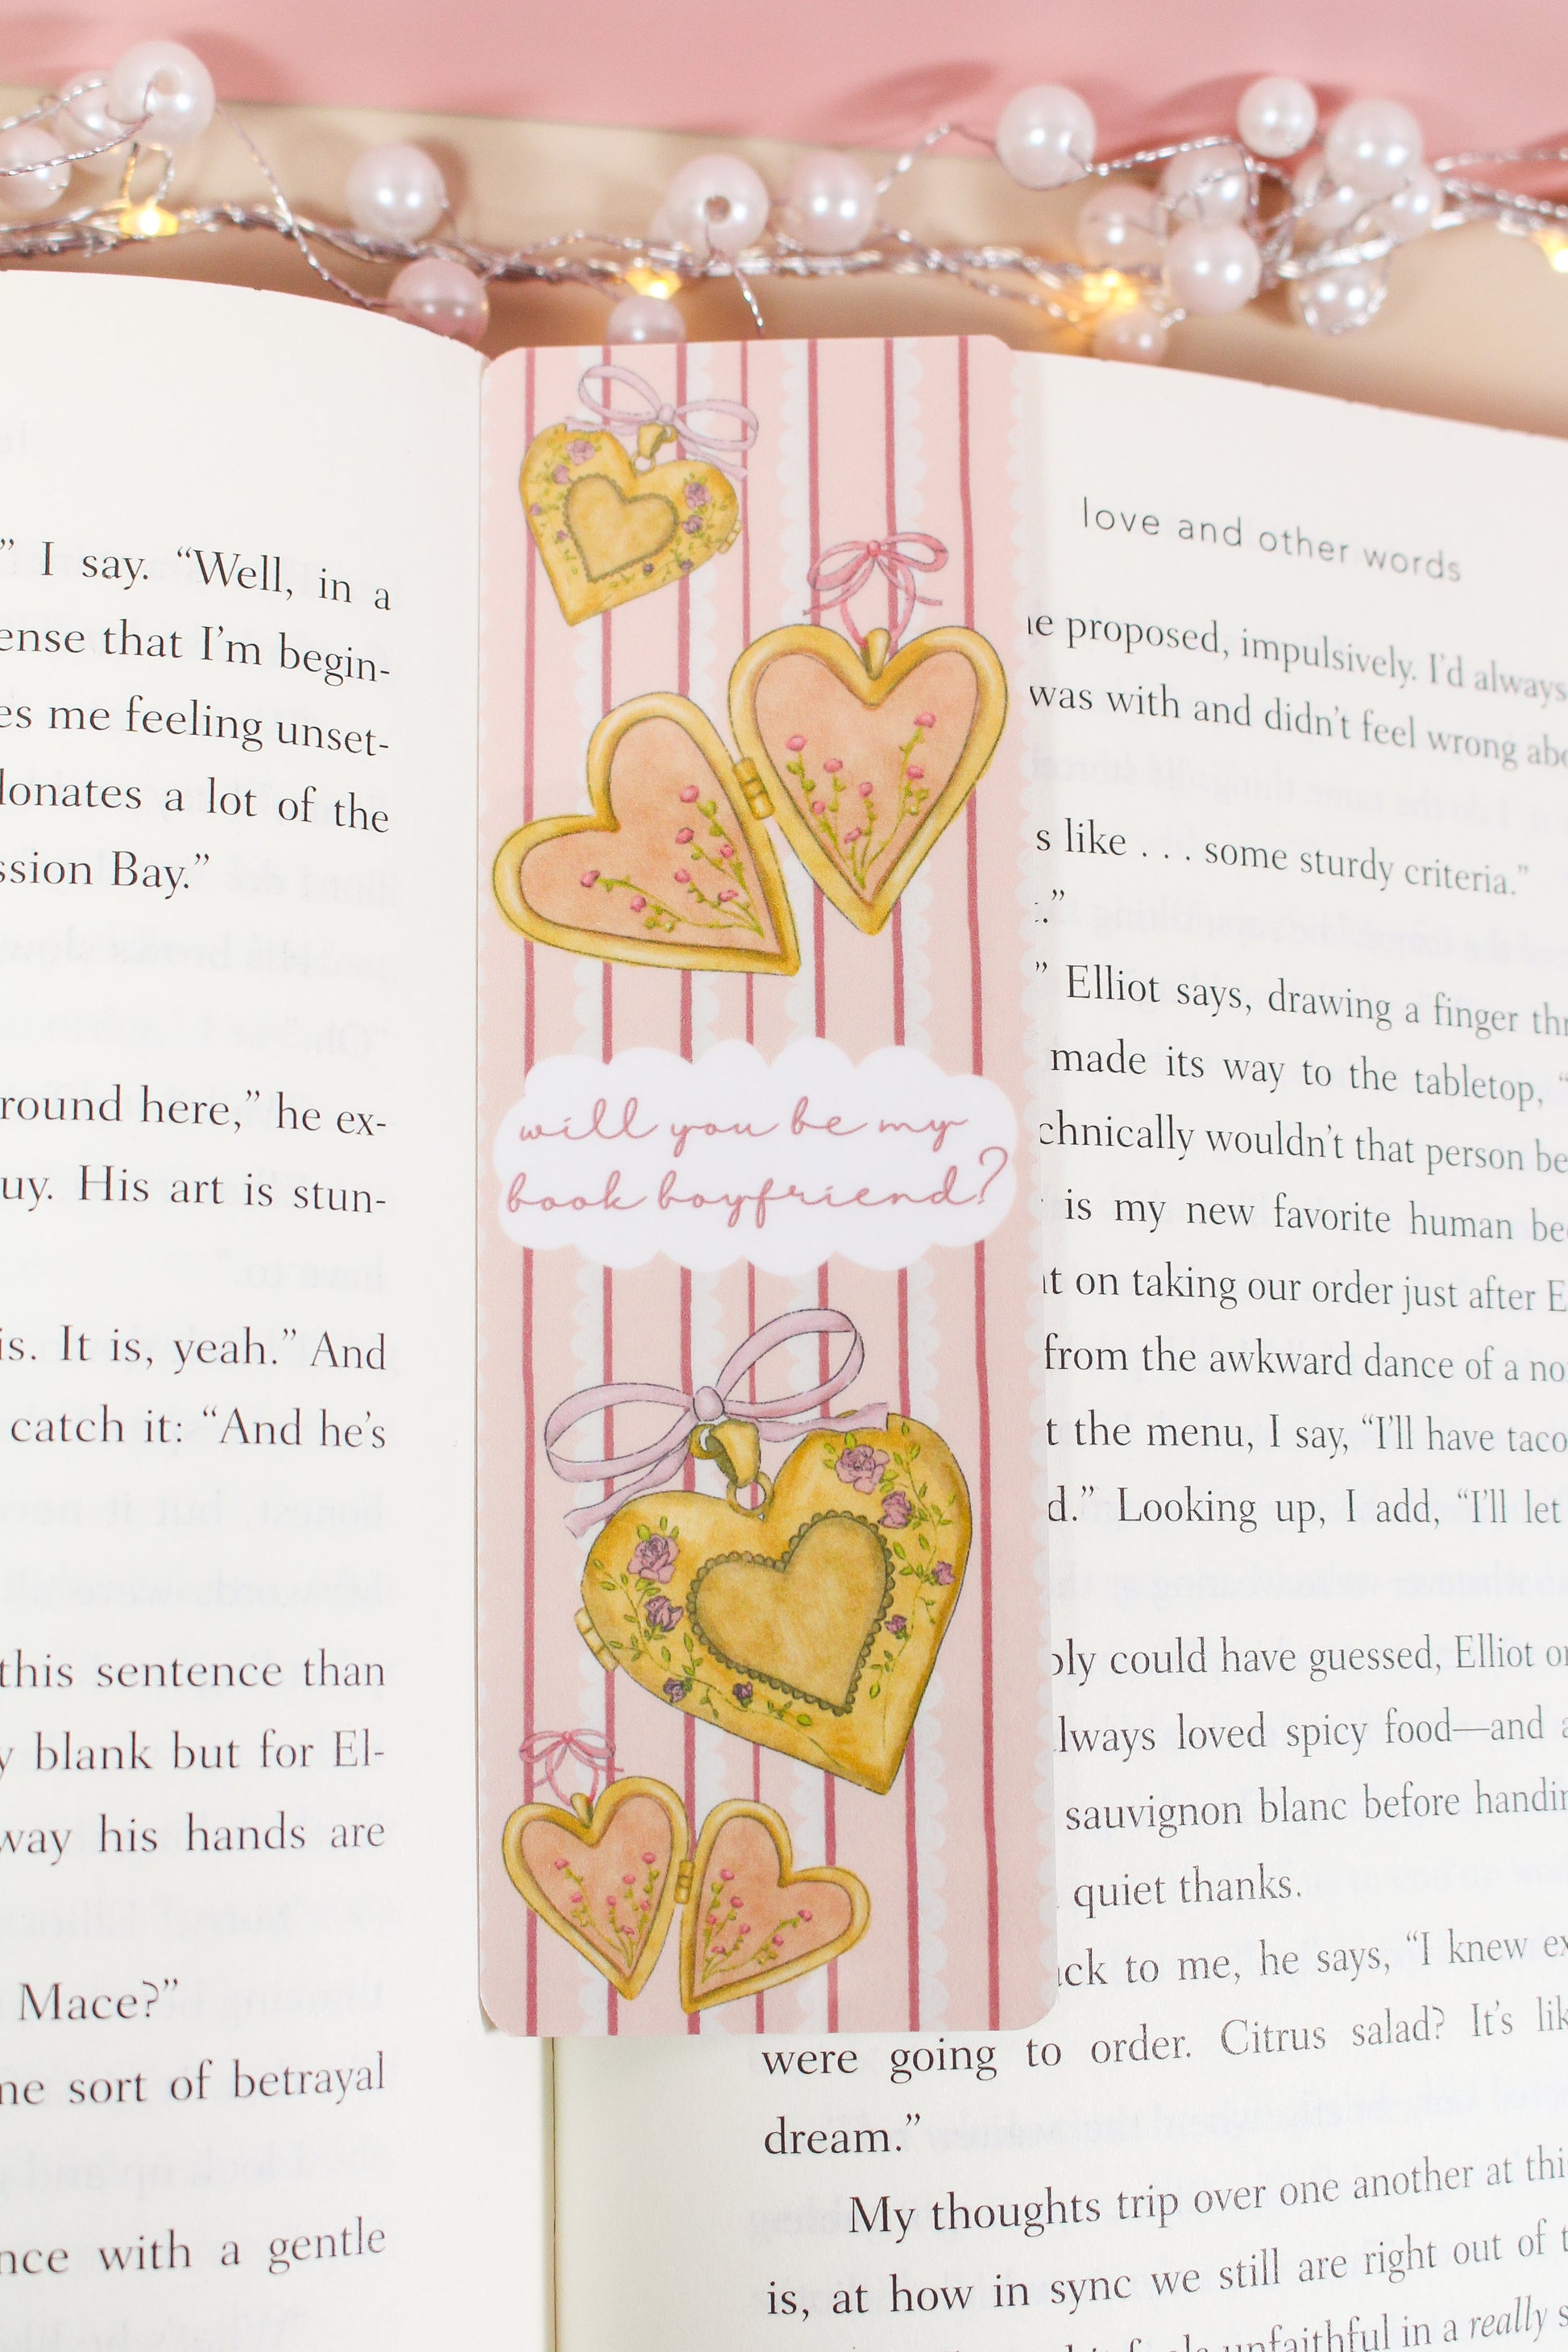 ” I say. “Well, in a
that I’m begin-
me feeling unset-
a lot of the
Bay.”
here,” he ex-
His art is stun-
It is, yeah.” And
catch it: “And he’s
this sentence than
blank but for El-
his hands are
Mace?”
sort of betrayal
with a gentle
will you be my
book boyfriend?
love and other words
proposed, impulsively. I’d always
was with and didn’t feel wrong
like . . . some sturdy criteria.”
” Elliot says, drawing a finger
made its way to the tabletop, “
wouldn’t that person
is my new favorite human
on taking our order just after
from the awkward dance of a
the menu, I say, “I’ll have
Looking up, I add, “I’ll let
could have guessed, Elliot
loved spicy food—and
sauvignon blanc before
quiet thanks.
to me, he says, “I knew
were going to order. Citrus salad? It’s
dream.”
My thoughts trip over one another at
is, at how in sync we still are right out of
unfaithful in a really